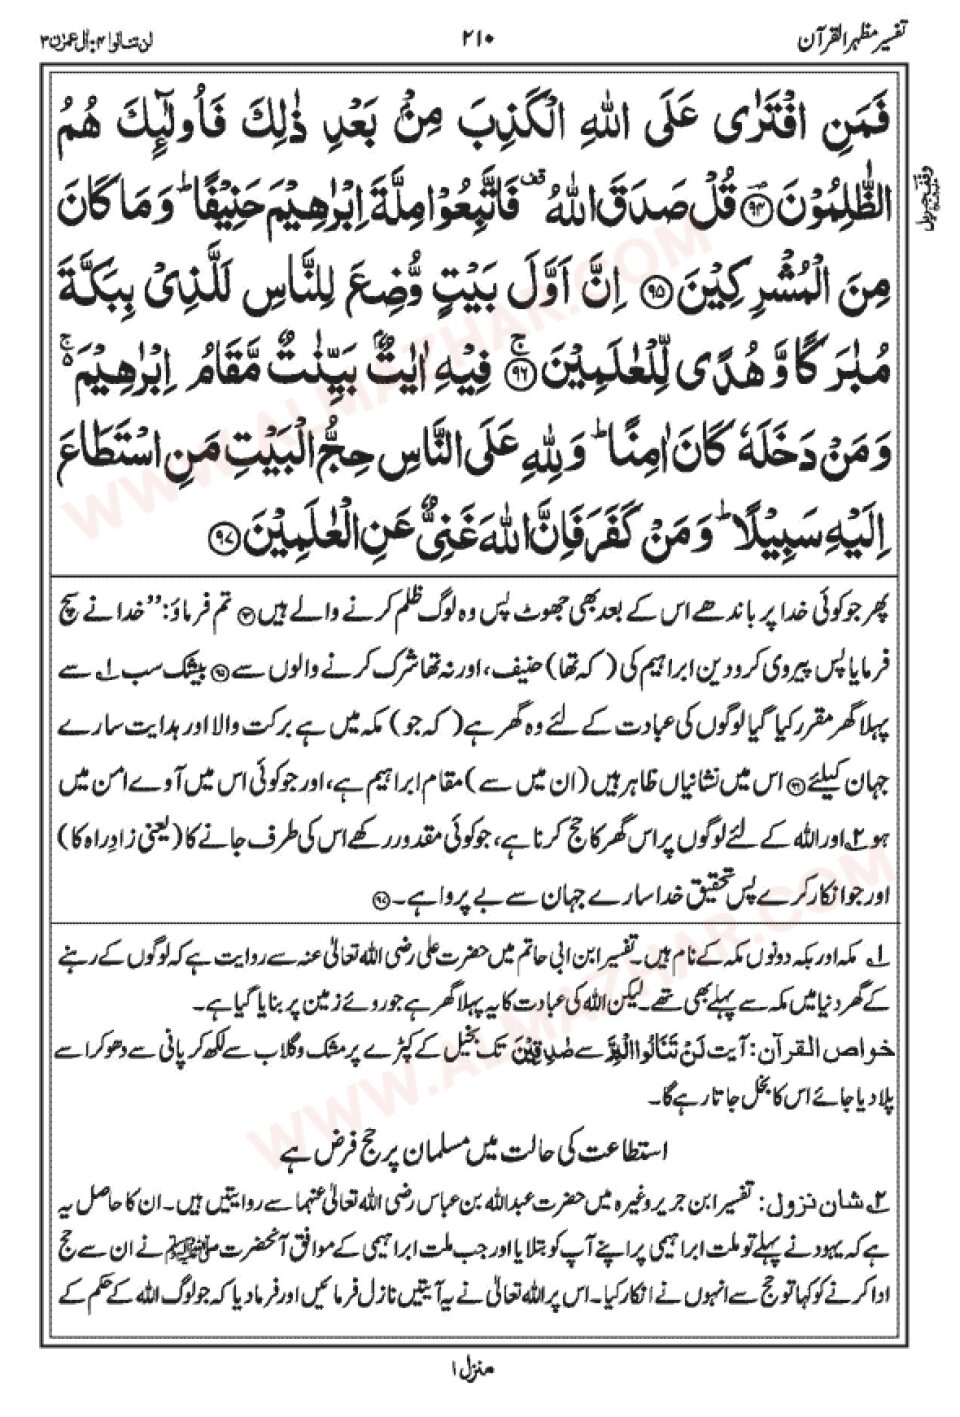 تفسیر مظہر القرآن
۲۱۰
لن تنالوا ۴: اٰل عمرٰن ۳
فَمَنِ افْتَرٰى عَلَى اللّٰهِ الْكَذِبَ مِنْۢ بَعْدِ ذٰلِكَ فَاُولٰٓئِكَ هُمُ
الظّٰلِمُوْنَ ﴿۹۴﴾ قُلْ صَدَقَ اللّٰهُ قف فَاتَّبِعُوْا مِلَّةَ اِبْرٰهِيْمَ حَنِيْفًا ؕ وَمَا كَانَ
مِنَ الْمُشْرِكِيْنَ ﴿۹۵﴾ اِنَّ اَوَّلَ بَيْتٍ وُّضِعَ لِلنَّاسِ لَلَّذِيْ بِبَكَّةَ
مُبٰرَكًا وَّهُدًى لِّلْعٰلَمِيْنَ ﴿۹۶﴾ۚ فِيْهِ اٰيٰتٌۢ بَيِّنٰتٌ مَّقَامُ اِبْرٰهِيْمَ ۚ۬
وَمَنْ دَخَلَهٗ كَانَ اٰمِنًا ؕ وَلِلّٰهِ عَلَى النَّاسِ حِجُّ الْبَيْتِ مَنِ اسْتَطَاعَ
اِلَيْهِ سَبِيْلًا ؕ وَمَنْ كَفَرَ فَاِنَّ اللّٰهَ غَنِيٌّ عَنِ الْعٰلَمِيْنَ ﴿۹۷﴾
پھر جو کوئی خدا پر باندھے اس کے بعد بھی جھوٹ پس وہ لوگ ظلم کرنے والے ہیں ﴿۹۴﴾ تم فرماؤ: ’’خدا نے سچ
فرمایا پس پیروی کرو دین ابراہیم کی (کہ تھا) حنیف، اور نہ تھا شرک کرنے والوں سے ﴿۹۵﴾ بیشک سب ۱؎ سے
پہلا گھر مقرر کیا گیا لوگوں کی عبادت کے لئے وہ گھر ہے (کہ جو) مکہ میں ہے برکت والا اور ہدایت سارے
جہان کیلئے ﴿۹۶﴾ اس میں نشانیاں ظاہر ہیں (ان میں سے) مقام ابراہیم ہے، اور جو کوئی اس میں آوے امن میں
ہو ۲؎ اور اللہ کے لئے لوگوں پر اس گھر کا حج کرنا ہے، جو کوئی مقدور رکھے اس کی طرف جانے کا (یعنی زادِ راہ کا)
اور جو انکار کرے پس تحقیق خدا سارے جہان سے بے پروا ہے۔ ﴿۹۷﴾
۱؎ مکہ اور بکہ دونوں مکہ کے نام ہیں۔ تفسیر ابن ابی حاتم میں حضرت علی رضی اللہ تعالیٰ عنہ سے روایت ہے کہ لوگوں کے رہنے
کے گھر دنیا میں مکہ سے پہلے بھی تھے۔ لیکن اللہ کی عبادت کا یہ پہلا گھر ہے جو روئے زمین پر بنایا گیا ہے۔
خواص القرآن: آیت لَنْ تَنَالُوا الْبِرَّ سے صٰدِقِيْنَ تک بخیل کے کپڑے پر مشک و گلاب سے لکھ کر پانی سے دھو کر اسے
پلا دیا جائے اس کا بخل جاتا رہے گا۔
استطاعت کی حالت میں مسلمان پر حج فرض ہے
۲؎ شان نزول: تفسیر ابن جریر وغیرہ میں حضرت عبداللہ بن عباس رضی اللہ تعالیٰ عنہما سے روایتیں ہیں۔ ان کا حاصل یہ
ہے کہ یہود نے پہلے تو ملت ابراہیمی پر اپنے آپ کو بتلایا اور جب ملت ابراہیمی کے موافق آنحضرت ﷺ نے ان سے حج
ادا کرنے کو کہا تو حج سے انہوں نے انکار کیا۔ اس پر اللہ تعالیٰ نے یہ آیتیں نازل فرمائیں اور فرما دیا کہ جو لوگ اللہ کے حکم کے
منزل ۱
WWW.ALMAZHAR.COM
WWW.ALMAZHAR.COM